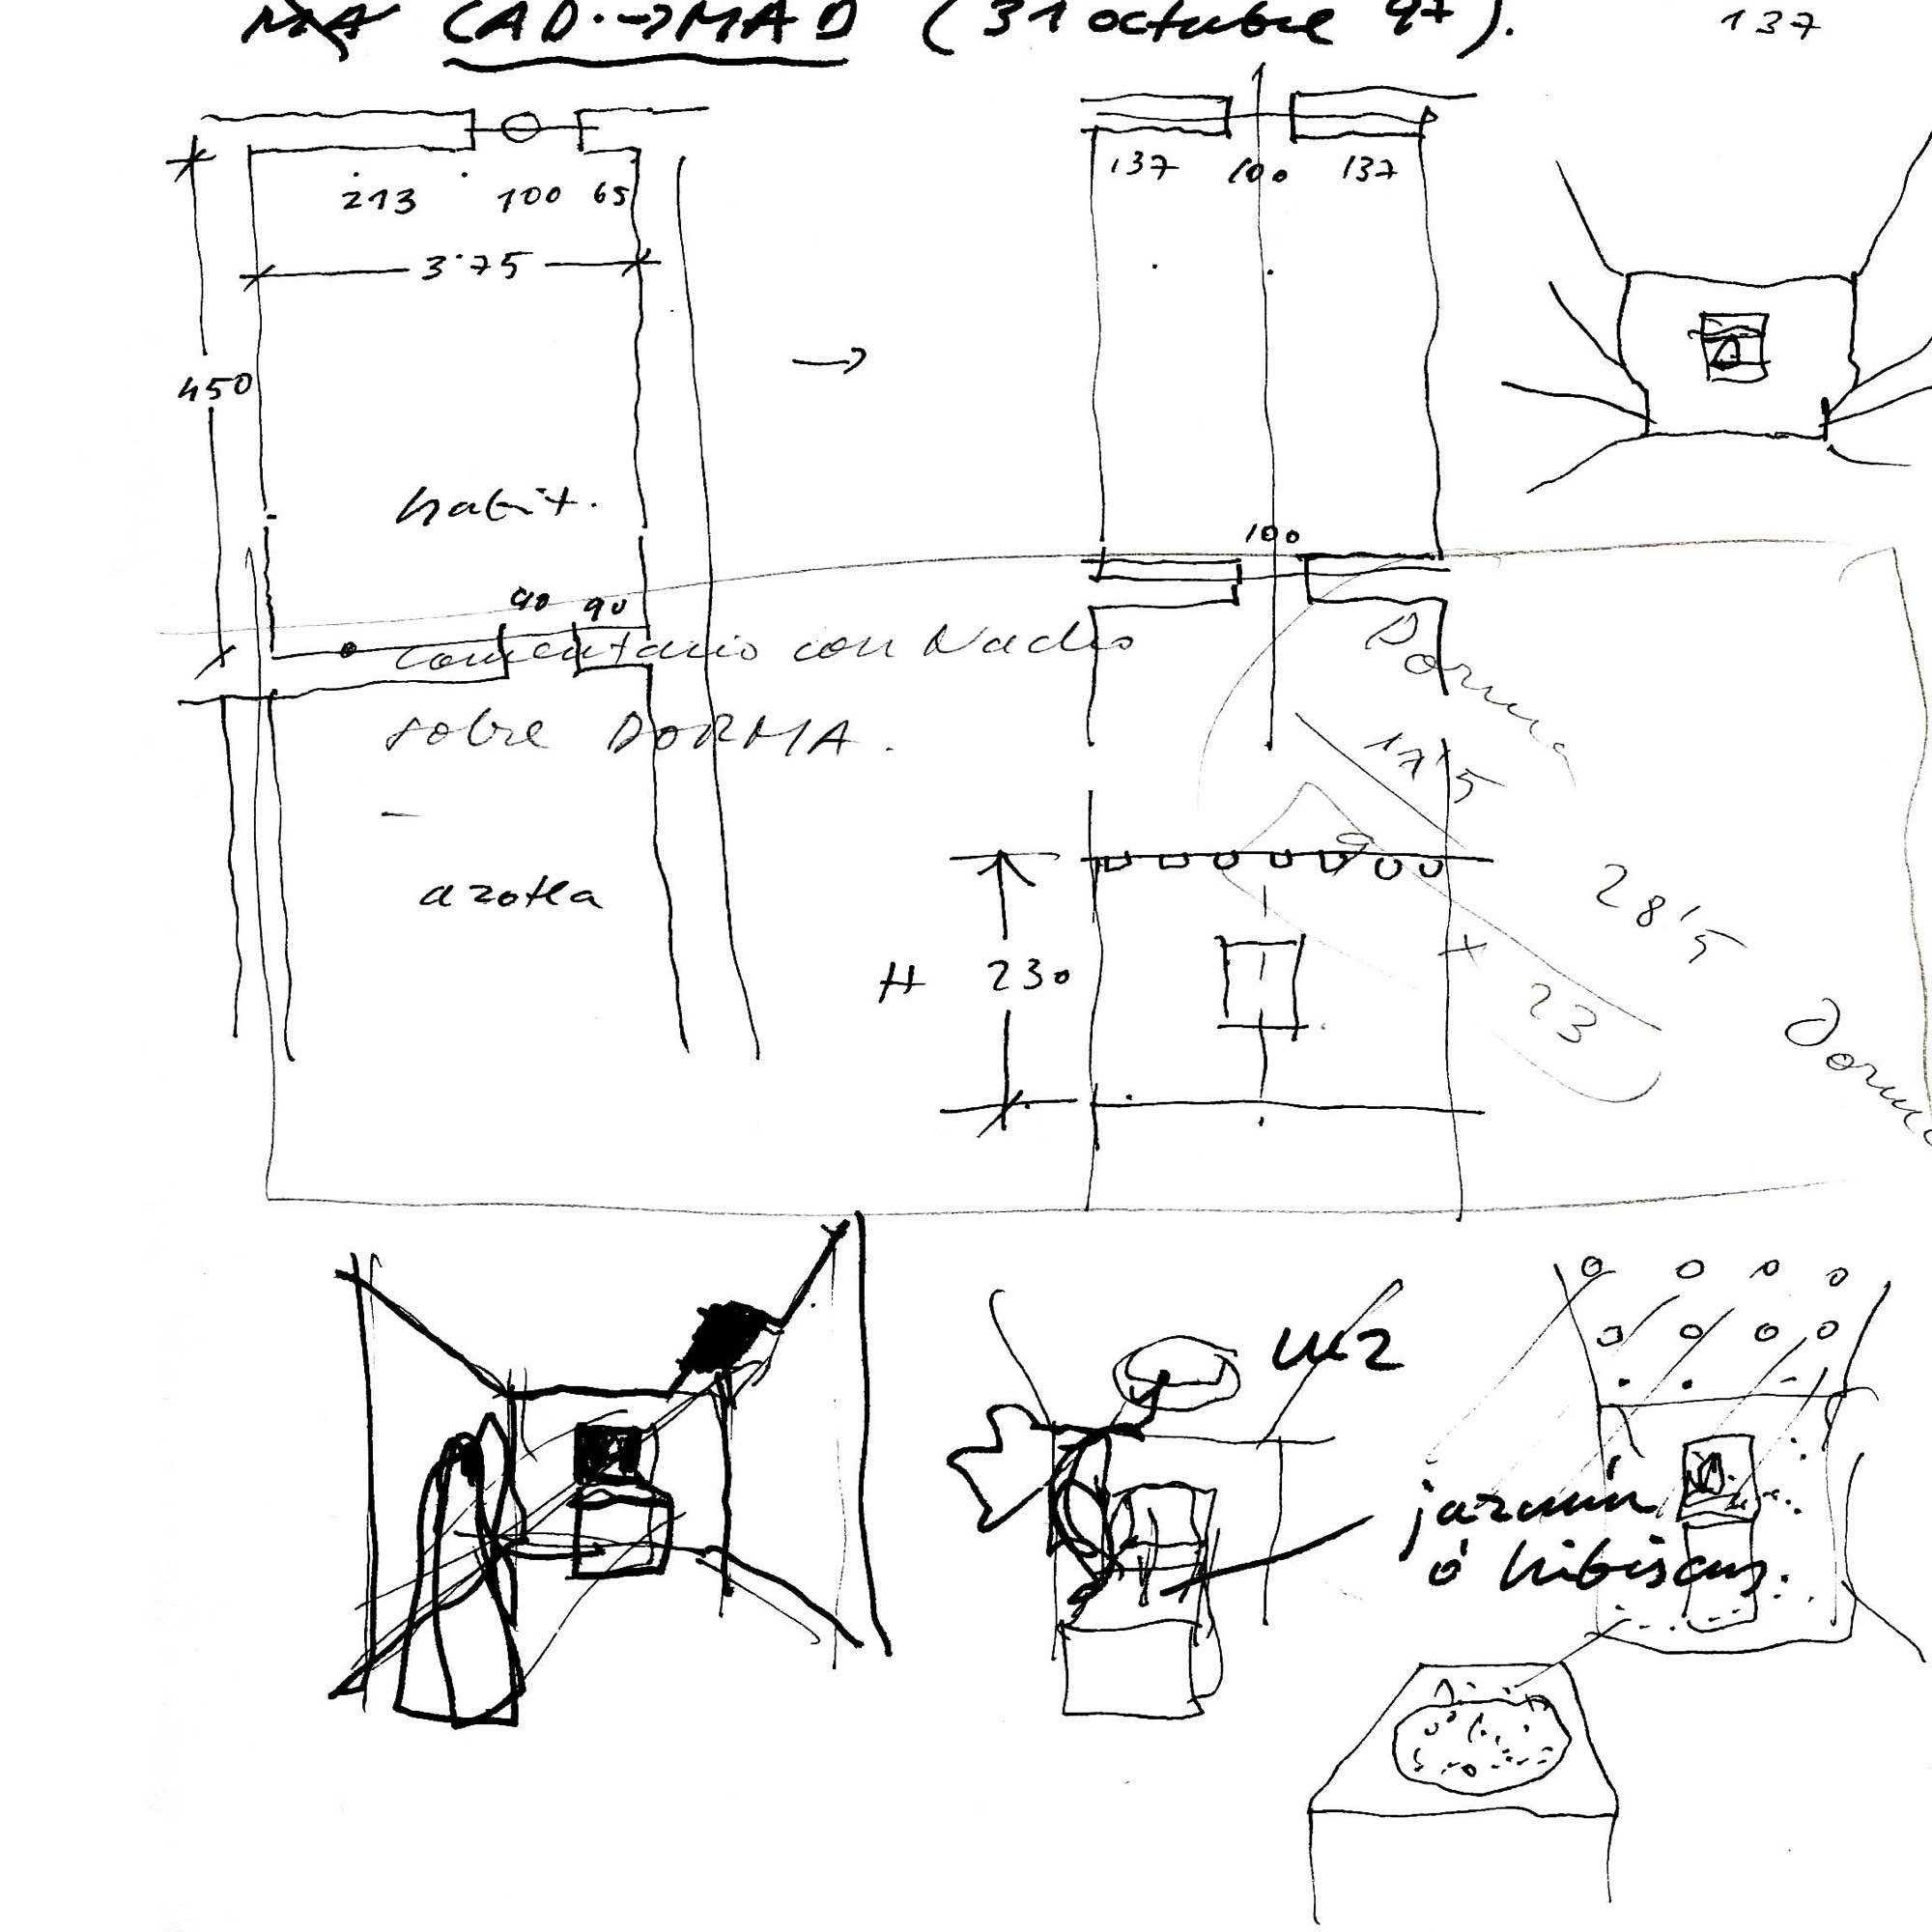 CAD.→MAD (31 octubre 97). 137
213 100 65
137 100 137
3'75
450
habit.
100
90 90
comentario con Nacho
sobre DORMA.
Dorma
17'5
azotea
28'5
H 230
x 23
Dorma
luz
jazmín
ó hibiscus.